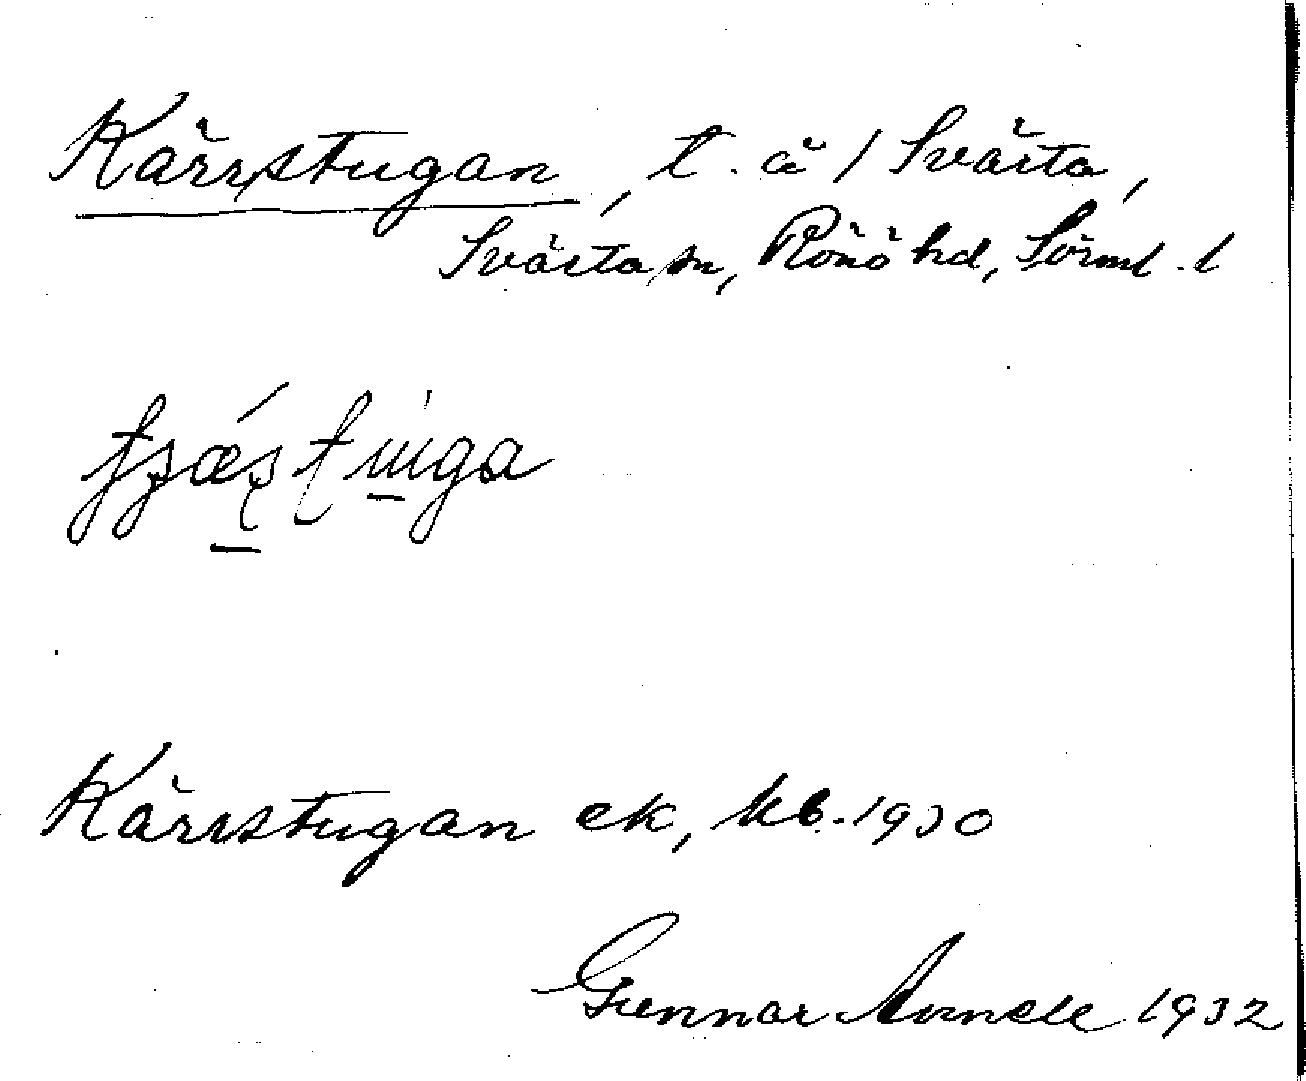 Kärrstugan, t. å 1 Svärta,
Svärta sn, Rönö hd, Sörml. l
Kärrstugan ek, kb. 1930
Gunnar Arnell 1932